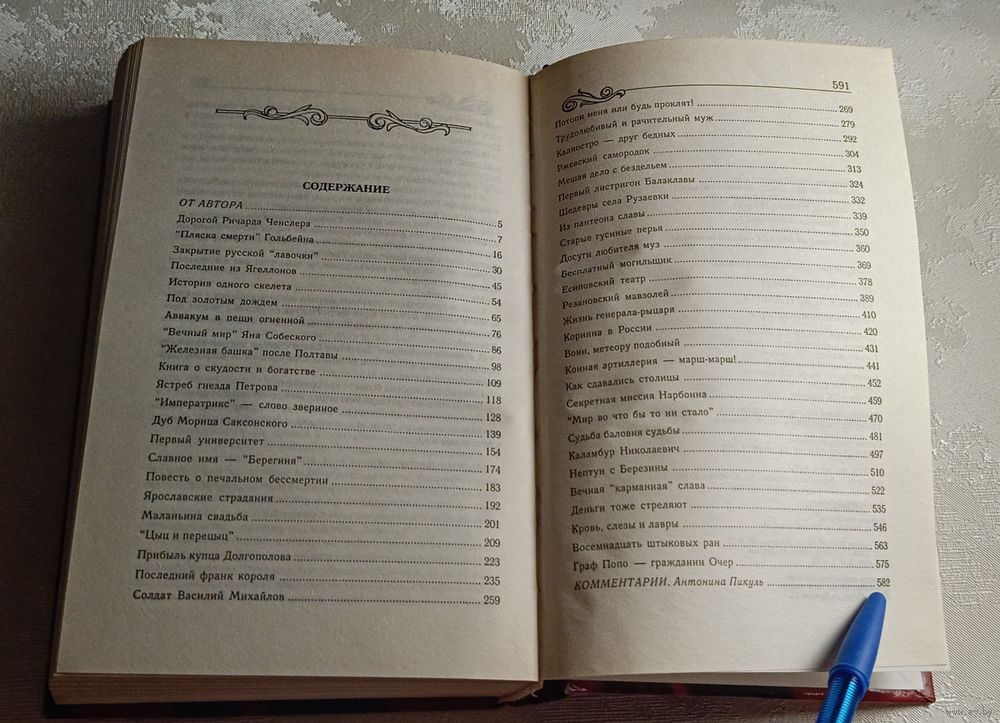 СОДЕРЖАНИЕ
ОТ АВТОРА 5
Дорогой Ричарда Ченслера 7
"Пляска смерти" Гольбейна 16
Закрытие русской "лавочки" 30
Последние из Ягеллонов 45
История одного скелета 54
Под золотым дождем 65
Аввакум в пещи огненной 76
"Вечный мир" Яна Собеского 86
"Железная башка" после Полтавы 98
Книга о скудости и богатстве 109
Ястреб гнезда Петрова 118
"Императрикс" — слово звериное 128
Дуб Морица Саксонского 139
Первый университет 154
Славное имя — "Берегиня" 174
Повесть о печальном бессмертии 183
Ярославские страдания 192
Маланьина свадьба 201
"Цыц и перецыц" 209
Прибыль купца Долгополова 223
Последний франк короля 235
Солдат Василий Михайлов 259
591
Потопи меня или будь проклят! 269
Трудолюбивый и рачительный муж 279
Калиостро — друг бедных 292
Ржевский самородок 304
Мешая дело с бездельем 313
Первый листригон Балаклавы 324
Шедевры села Рузаевки 332
Из пантеона славы 339
Старые гусиные перья 350
Досуги любителя муз 360
Бесплатный могильщик 369
Есиповский театр 378
Резановский мавзолей 389
Жизнь генерала-рыцаря 410
Коринна в России 420
Воин, метеору подобный 431
Конная артиллерия — марш-марш! 441
Как сдавались столицы 452
Секретная миссия Нарбонна 459
"Мир во что бы то ни стало" 470
Судьба баловня судьбы 481
Каламбур Николаевич 497
Нептун с Березины 510
Вечная "карманная" слава 522
Деньги тоже стреляют 535
Кровь, слезы и лавры 546
Восемнадцать штыковых ран 563
Граф Попо — гражданин Очер 575
КОММЕНТАРИИ. Антонина Пикуль 582